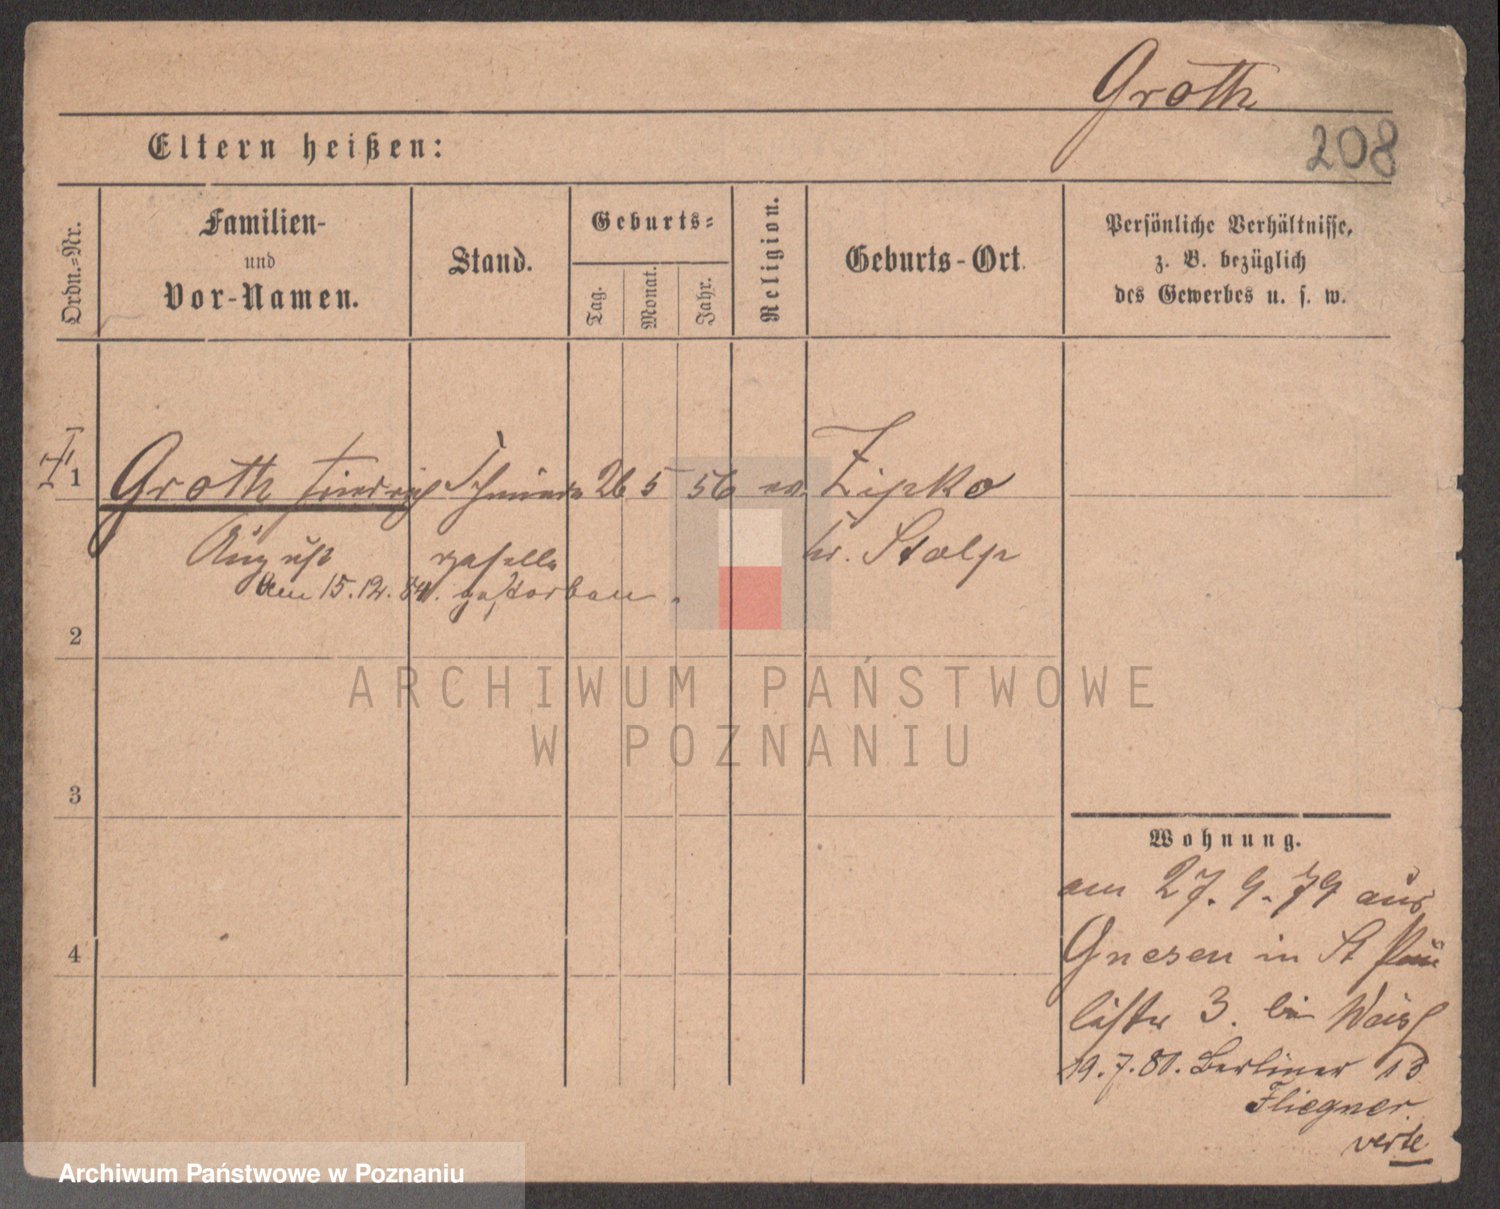 Groth
208
Eltern heißen:
Ordn.-Nr.
Familien-
und
Vor-Namen.
Stand.
Geburts-
Tag.
Monat.
Jahr.
Religion.
Geburts-Ort.
Persönliche Verhältnisse,
z. B. bezüglich
des Gewerbes u. s. w.
1 Groth Friedrich Schmiede 26 5 56 ev. Zipko
August geselle Kr. Stolp
Am 15.12.84. gestorben.
2
3
4
Wohnung.
am 27. 9. 79 aus
Gnesen in St Pau
listr 3. bei
19.7.80. Berliner 13
Fliegner.
verte
ARCHIWUM PAŃSTWOWE
W POZNANIU
Archiwum Państwowe w Poznaniu